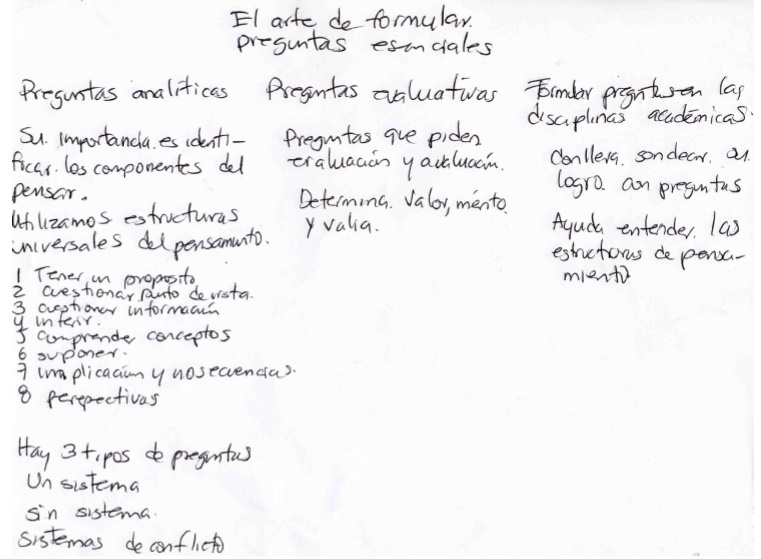 El arte de formular.
preguntas esenciales
Preguntas analíticas
Su. importancia. es identi-
ficar. los componentes del
pensar.
Utilizamos estructuras
universales del pensamiento.
1 Tener un proposito
2 cuestionar, punto de vista.
3 cuestionar información
4 inferir.
5 comprende conceptos
6 suponer.
7 implicación y
8 perepectivas
Hay 3 tipos de preguntas
Un sistema
sin sistema.
Sistemas de conflicto
Preguntas evaluativas
Preguntas que piden
evaluación y
Determina. Valor, mérito
y valía.
Formular preguntas en las
disciplinas académicas.
Conlleva. sondear. su
logro. con preguntas
Ayuda entender. las
estructuras de pensa-
miento